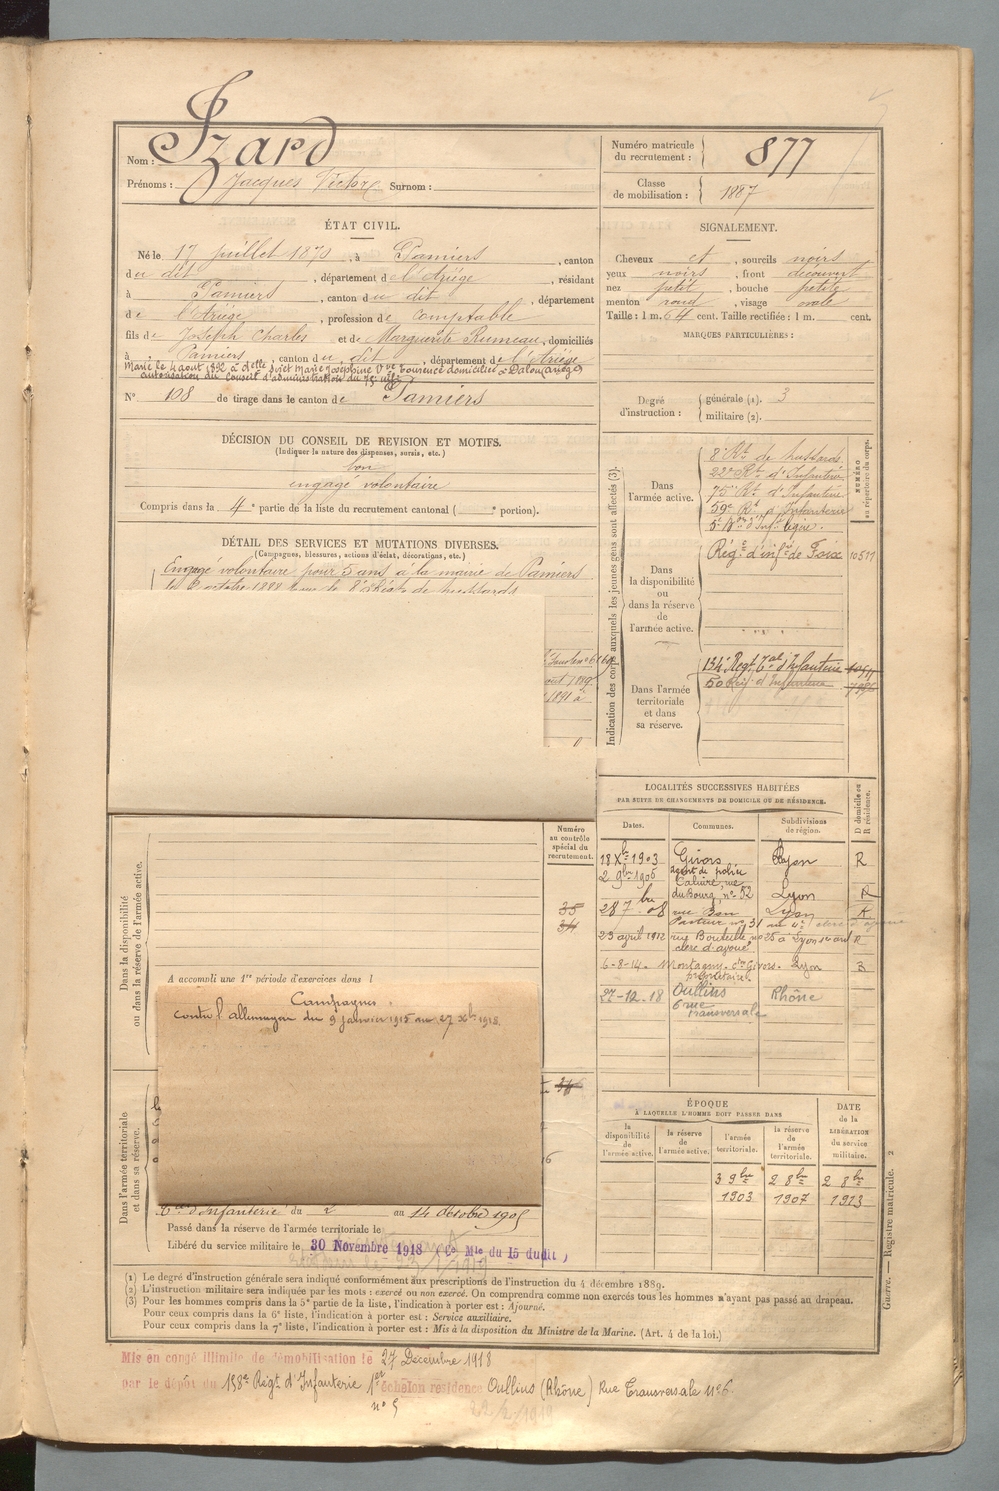 Nom : Izard
Prénoms : Jacques Victor Surnom :
Numéro matricule du recrutement : 877
Classe de mobilisation : 1887
ÉTAT CIVIL.
Né le 17 juillet 1870, à Pamiers, canton
du dit, département de l'Ariège, résidant
à Pamiers, canton du dit, département
de l'Ariège, profession de comptable
fils de Joseph Charles et de Marguerite Rumeau, domiciliés
à Pamiers, canton du dit, département de l'Ariège
Marié le 4 aout 1892 à delle Marie Joséphine domiciliée à Dalou (Ariège)
autorisation du Conseil d'administration du
N° 108 de tirage dans le canton de Pamiers
SIGNALEMENT.
Cheveux et, sourcils noirs
yeux noirs, front découvert
nez petit, bouche petite
menton rond, visage ovale
Taille : 1 m. 64 cent. Taille rectifiée : 1 m. cent.
MARQUES PARTICULIÈRES :
Degré d'instruction : générale (1). 3
militaire (2).
DÉCISION DU CONSEIL DE REVISION ET MOTIFS.
(Indiquer la nature des dispenses, sursis, etc.)
bon
engagé volontaire
Compris dans la 4e partie de la liste du recrutement cantonal ( e portion).
DÉTAIL DES SERVICES ET MUTATIONS DIVERSES.
(Campagnes, blessures, actions d'éclat, décorations, etc.)
Engagé volontaire pour 5 ans à la mairie de Pamiers
octobre 1888 pour le 8e Régt de hussards
1891 à
Indication des corps auxquels les jeunes gens sont affectés (3).
NUMÉRO au répertoire du corps.
Dans l'armée active.
8e Rt de hussards
22e Rt d'Infanterie
75e Rt d'Infanterie
59e Rt d'Infanterie
5e Bon d'Inf. légère.
Dans la disponibilité ou dans la réserve de l'armée active.
Régt d'infie de Foix
Dans l'armée territoriale et dans sa réserve.
134e Régt Tal d'Infanterie
d'Infanterie
LOCALITÉS SUCCESSIVES HABITÉES
PAR SUITE DE CHANGEMENTS DE DOMICILE OU DE RÉSIDENCE.
Dates. Communes. Subdivisions de région. D domicile ou R résidence.
18 Xbre 1903 Givors Lyon R
agent de police
2 9bre 1905 Caluire, rue
du Bourg, n° 52 Lyon R
28 7bre 08 Lyon R
Pasteur n° 31
23 avril 1912 rue Bouteille n° 25 à Lyon R
clerc d'avoué
6-8-14. Montagny. Givors. Lyon
propriétaire.
27-12-18 Oullins Rhône
6 rue
Transversale
Numéro au contrôle spécial du recrutement.
35
34
Dans la disponibilité ou dans la réserve de l'armée active.
A accompli une 1re période d'exercices dans l
Campagnes
contre l'allemagne du 9 janvier 1915 au 27 Xbre 1918.
Dans l'armée territoriale et dans sa réserve.
d'Infanterie du 2 au 14 octobre 1905
Passé dans la réserve de l'armée territoriale le
Libéré du service militaire le 30 Novembre 1918 (Ce Mle du 15 dudit)
ÉPOQUE
À LAQUELLE L'HOMME DOIT PASSER DANS
DATE de la LIBÉRATION du service militaire.
la disponibilité de l'armée active. la réserve de l'armée active. l'armée territoriale. la réserve de l'armée territoriale.
3 9bre 1903 2 8bre 1907 2 8bre 1913
(1) Le degré d'instruction générale sera indiqué conformément aux prescriptions de l'instruction du 4 décembre 1889.
(2) L'instruction militaire sera indiquée par les mots : exercé ou non exercé. On comprendra comme non exercés tous les hommes n'ayant pas passé au drapeau.
(3) Pour les hommes compris dans la 5e partie de la liste, l'indication à porter est : Ajourné.
Pour ceux compris dans la 6e liste, l'indication à porter est : Service auxiliaire.
Pour ceux compris dans la 7e liste, l'indication à porter est : Mis à la disposition du Ministre de la Marine. (Art. 4 de la loi.)
Guerre. — Registre matricule. 2
Mis en congé illimité de démobilisation le 27 Décembre 1918
par le dépôt du 158e Régt d'Infanterie 1er échelon résidence Oullins (Rhône) Rue Transversale n° 6
n° 5